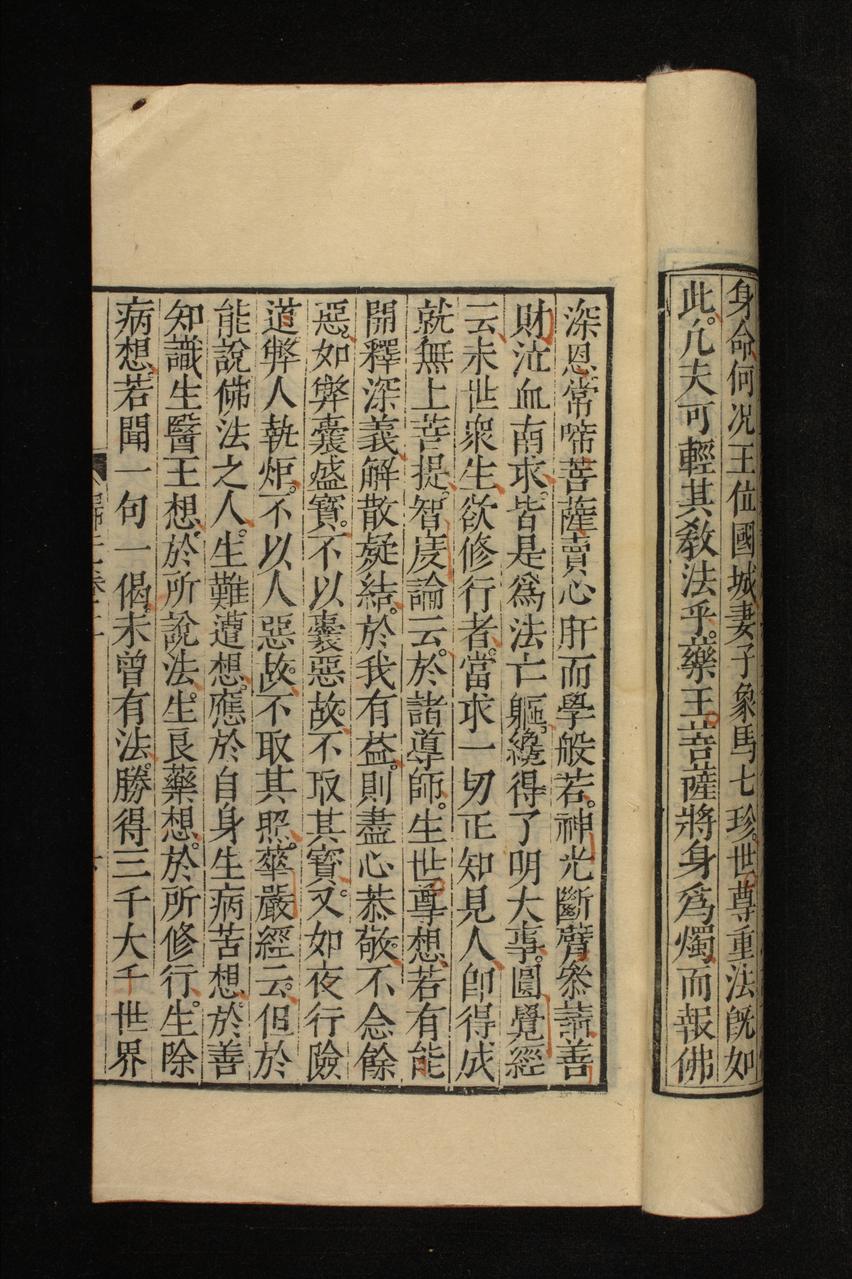 身命何况王位國城妻子象馬七珍世尊重法旣如
此。凡夫可輕其教法乎。藥王菩薩將身爲燭而報佛
深恩常啼菩薩賣心肝而學般若。神光斷臂叅請善
財泣血南求。皆是爲法亡軀。纔得了明大事。圓覺經
云末世衆生欲修行者。當求一切正知見人卽得成
就無上菩提。智度論云於諸導師。生世尊想若有能
開釋深義解散疑結。於我有益。則盡心恭敬。不念餘
惡。如弊囊盛寶。不以囊惡故。不取其寶。又如夜行險
道弊人執炬。不以人惡故。不取其照。華嚴經云。但於
能說佛法之人。生難遭想。應於自身生病苦想。於善
知識生醫王想。於所說法。生良藥想。於所修行。生除
病想。若聞一句一偈。未曾有法。勝得三千大千世界